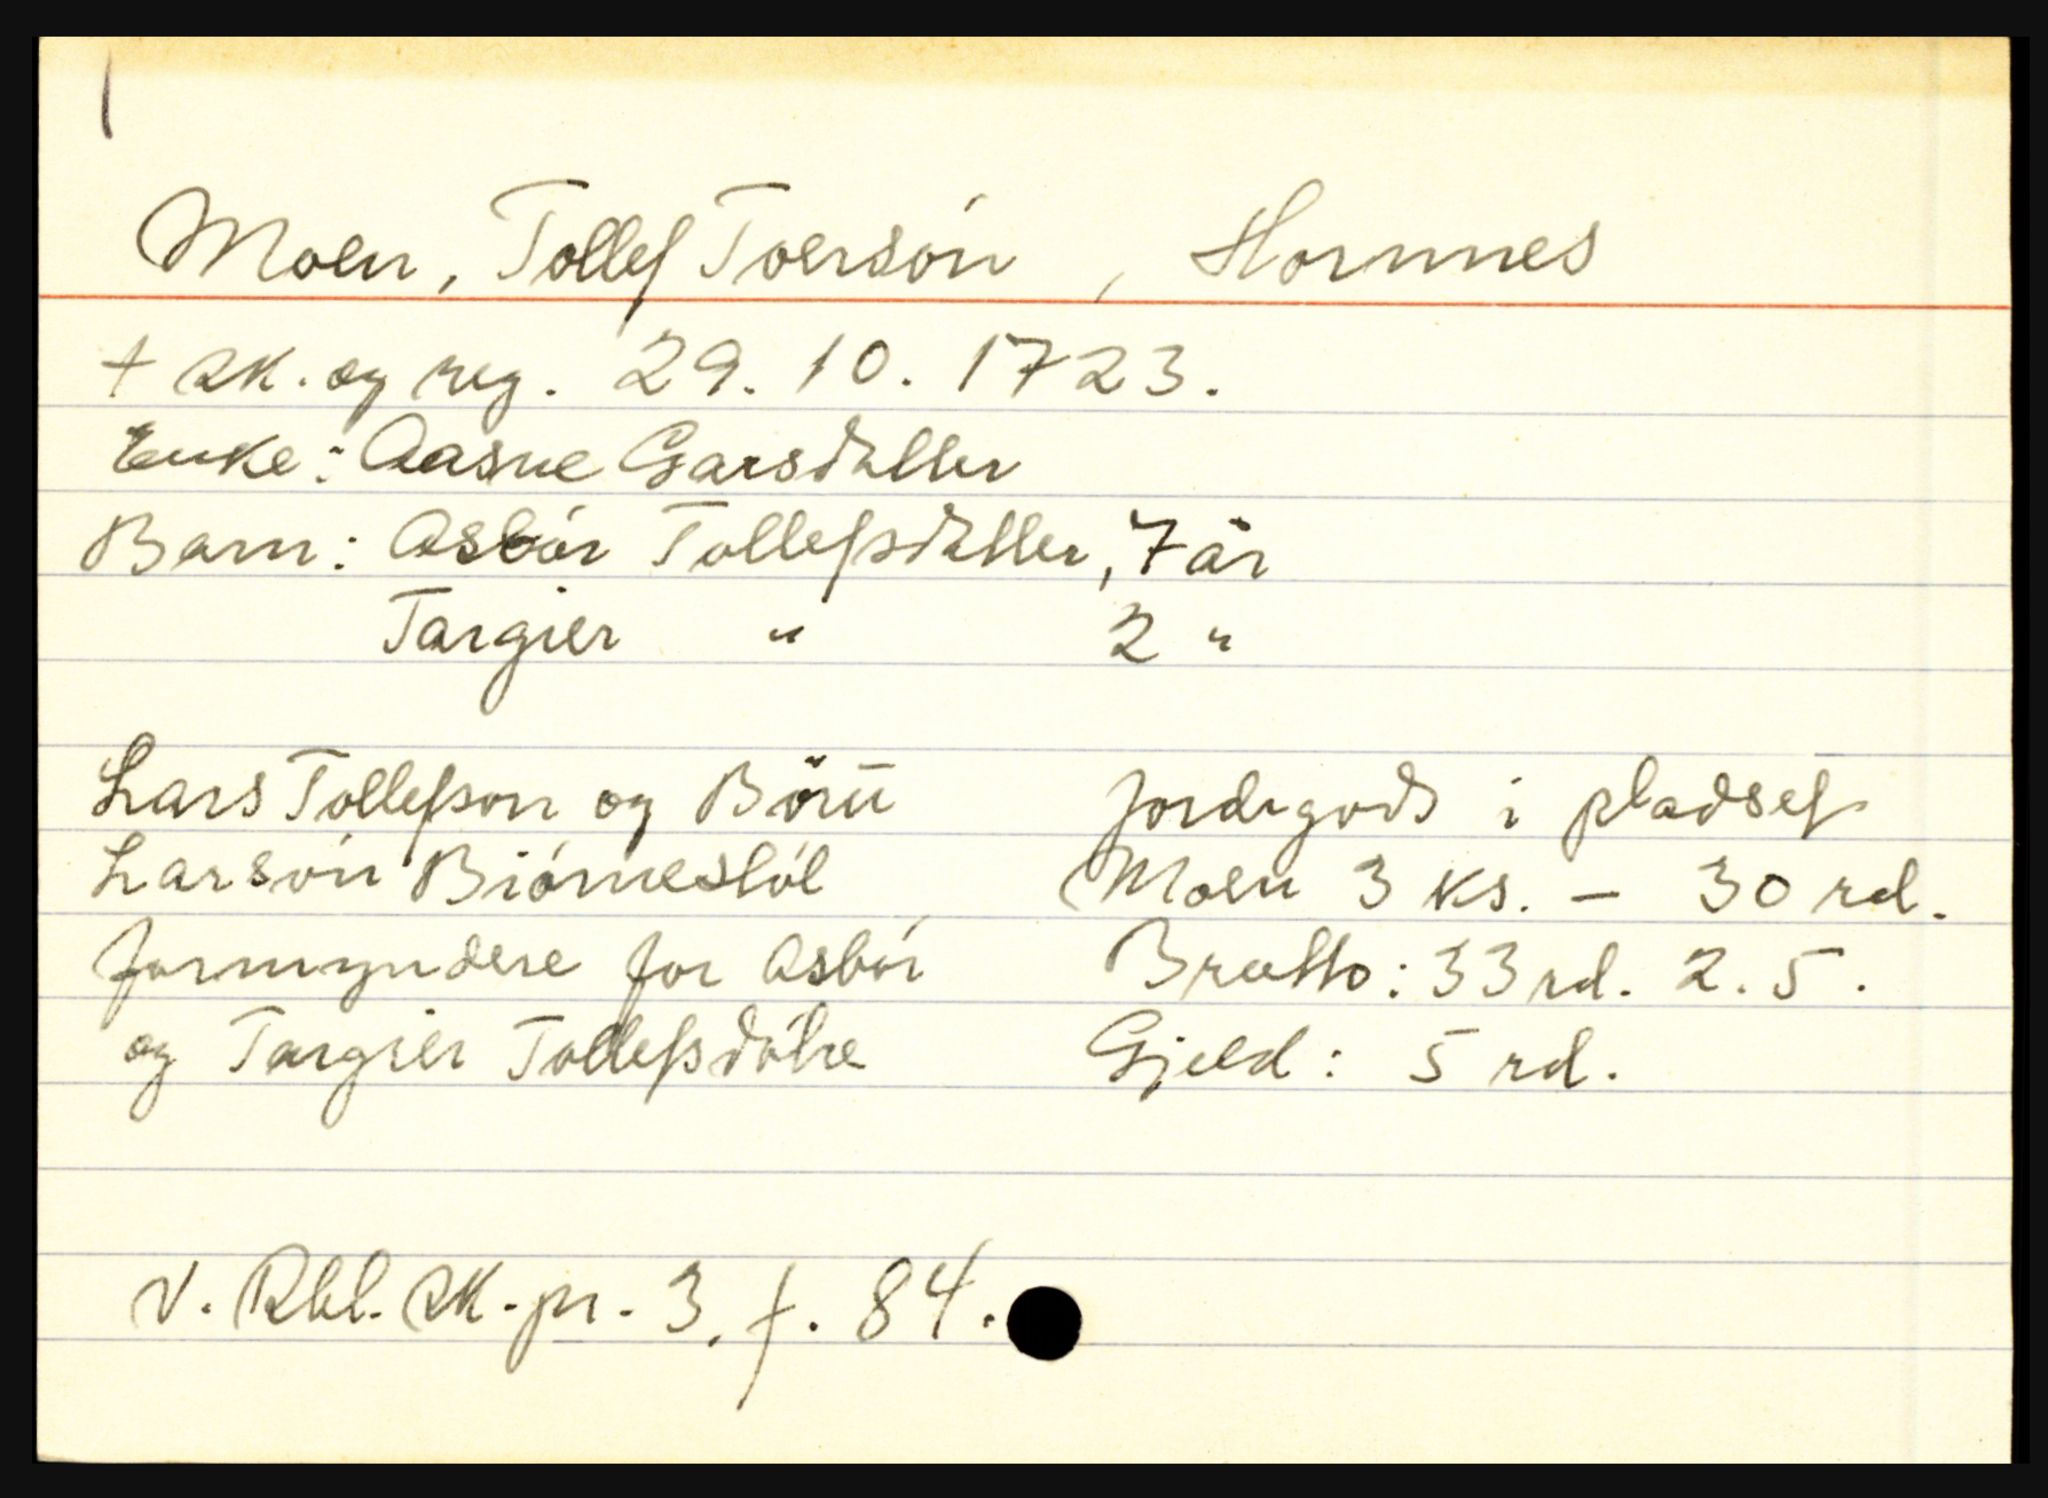 Moen, Tollef Toersön, Hornnes
+ sk. og reg. 29. 10. 1723.
Enke: Aasne Garsdatter
Barn: Asbór Tollefsdatter, 7 år
Targier " 2 "
Lars Tollefson og
Larsón Biórnestól
formyndere for Asbór
og Targier Tollefsdótre
Jordegods i pladsef
Moen 3 ks. - 30 rd.
Brutto: 33 rd. 2. 5.
Gjeld: 5 rd.
V. Rbl. sk. pr. 3. f. 84.